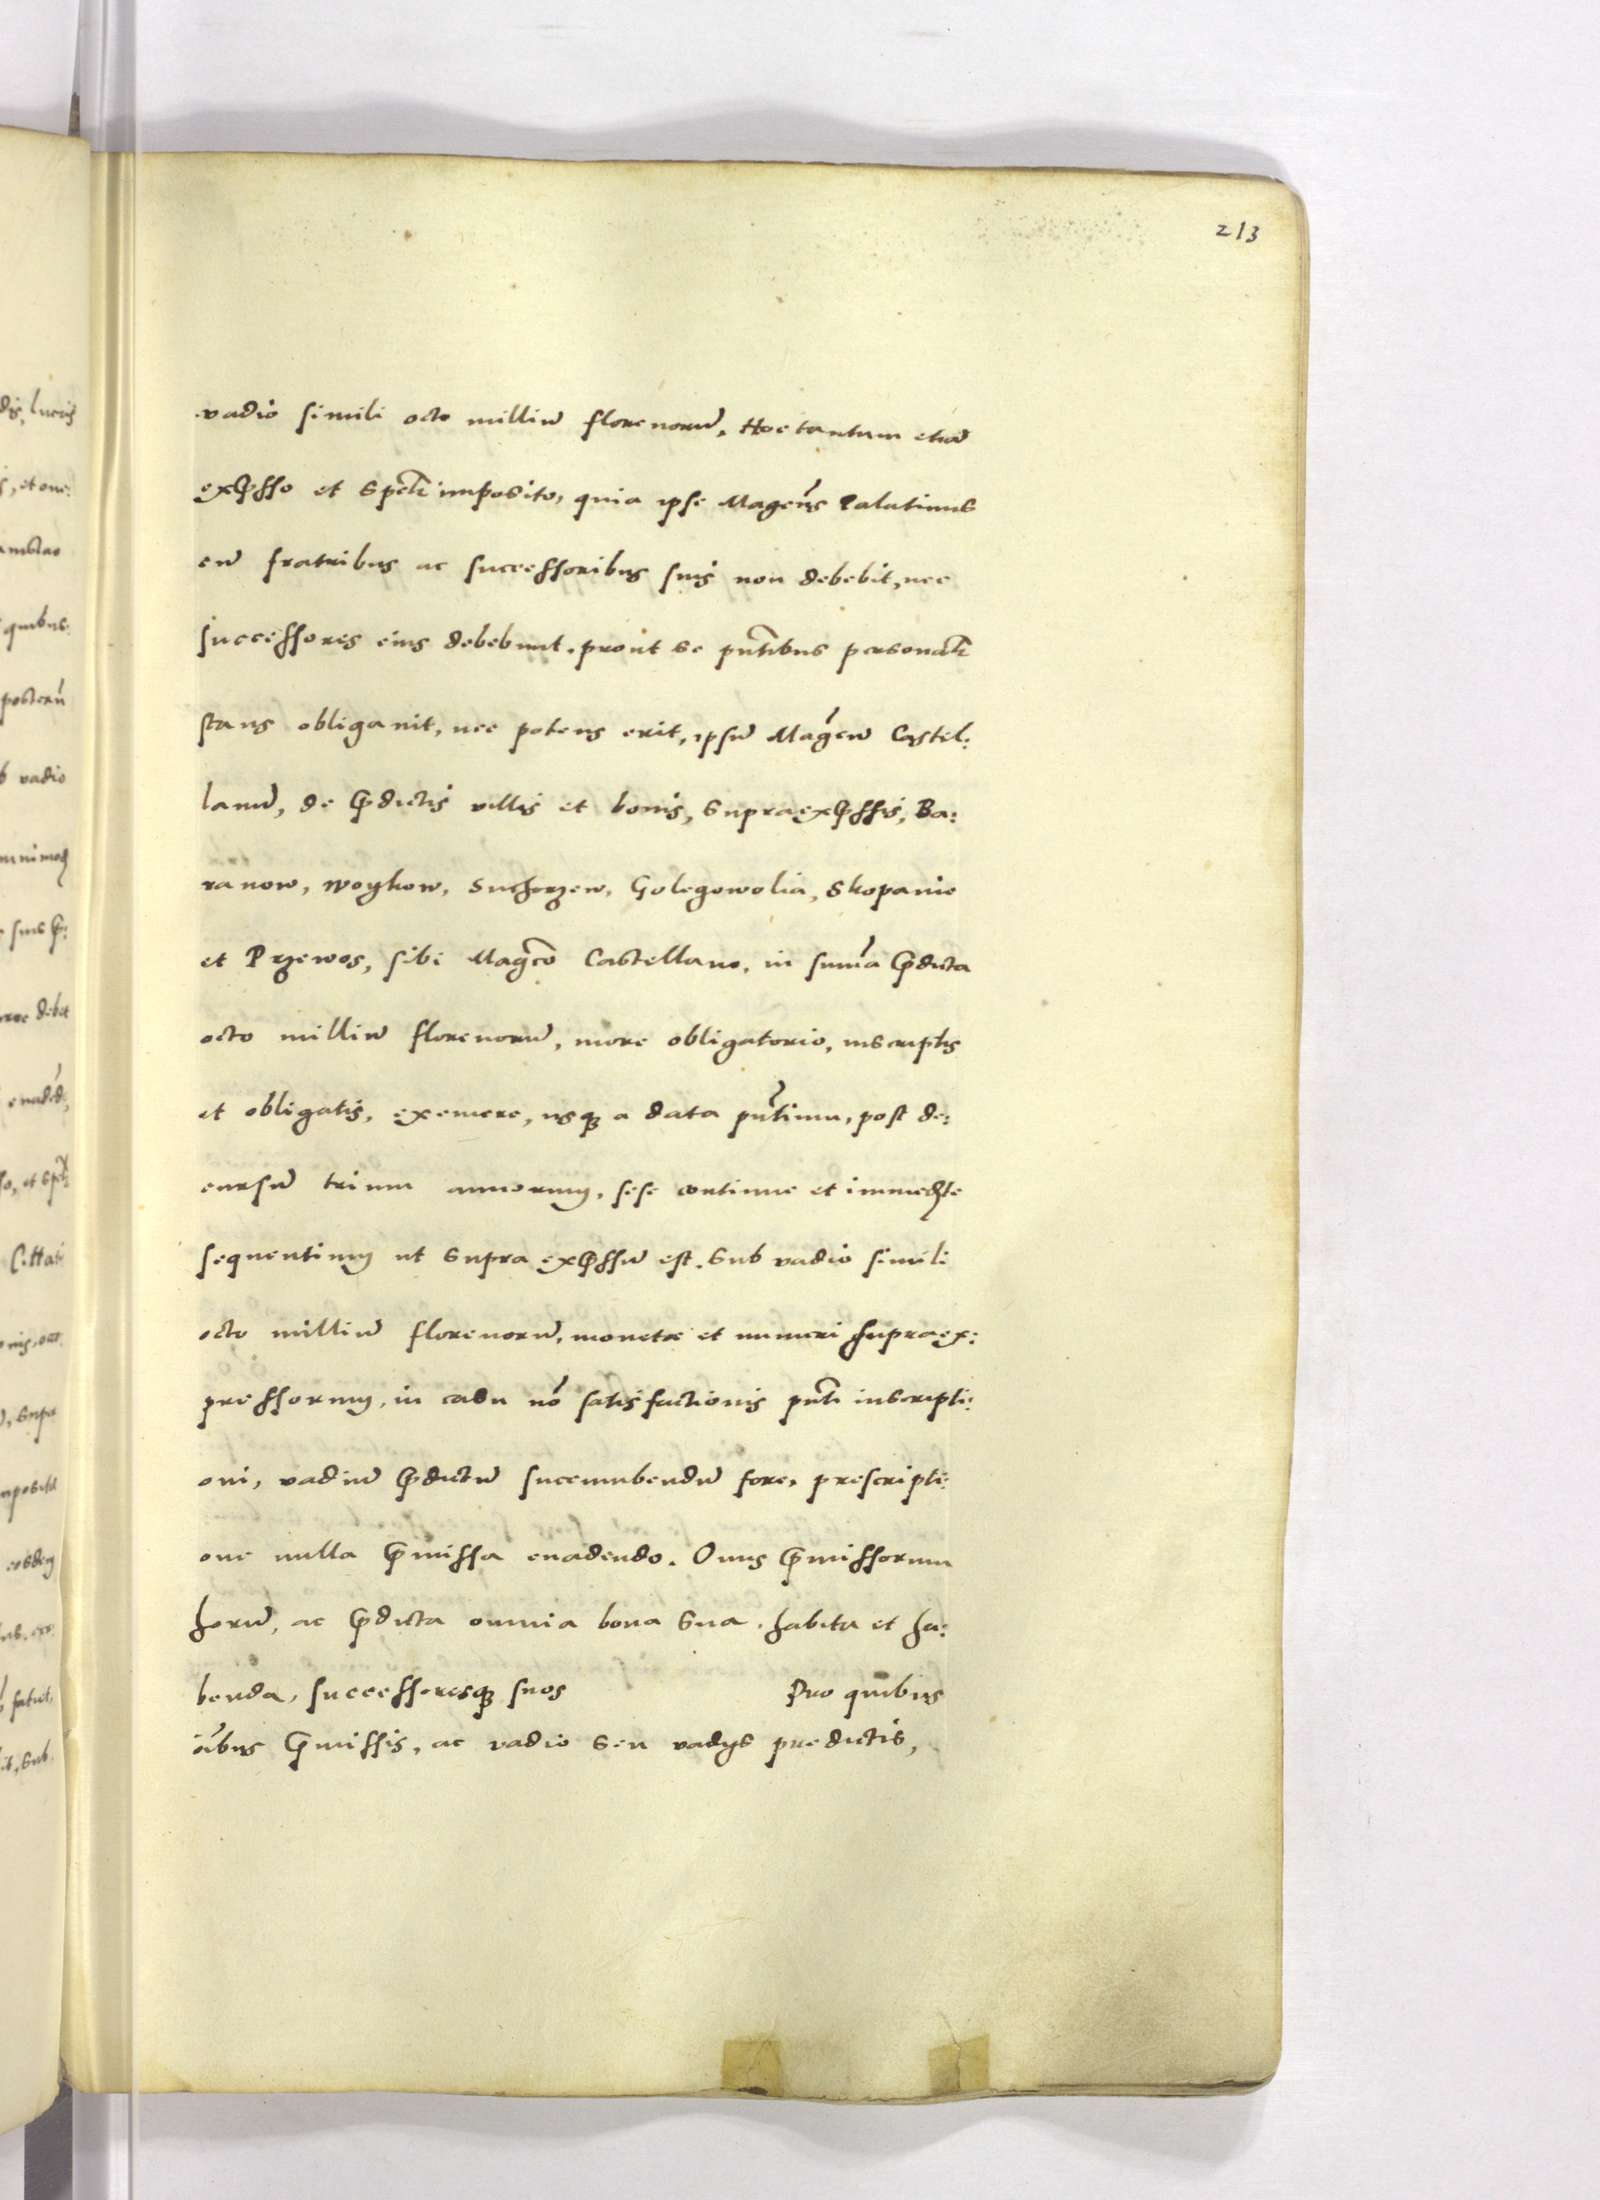 213
vadio simili octo milliū florenorū, Hoc tantum etiā
exp̄sso et speāl imposito, quia ipse Magcus Palatinus
cū fratribus ac successoribus suis non debebit, nec
successores eius debebunt, prout se pn̄tibus personālr
stans obligauit, nec potens erit, ipsū Magcū Castel:
lanū, de p̄dictis villis et bonis, supraexp̄ssis, Ba:
ranow, Woykow, Suchorzew, Golegowolia, Skopanie
et Przewos, sibi Magco Castellano, in summa p̄dicta
octo milliū florenorū, more obligatorio, inscriptis
et obligatis, exemere, usq3 a data pn̄tium, post de:
cursū trium annorum, sese continue et immedte
sequentium ut supra exp̄ssū est. Sub vadio simili
octo milliū florenorū, monetæ et numeri supraex:
pressorum, in casu nō satisfactionis pn̄ti inscripti:
oni, vadiū p̄dictū succumbendū fore, prescripti:
one nulla p̄missa euadendo. Onus p̄missorum
horū, ac p̄dicta omnia bona sua, habita et ha:
benda, successoresq3 suos Pro quibus
oībus p̄missis, ac vadio seu vadys predictis,